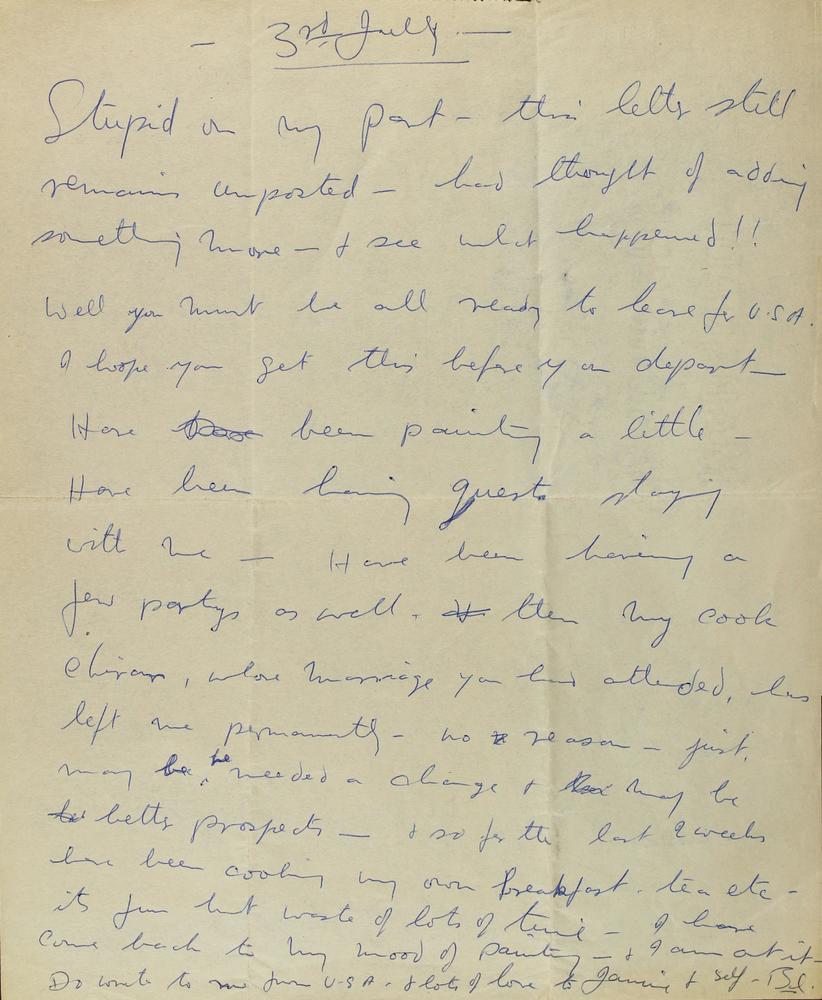 — 3rd July —
Stupid on my part — this letter still
remains unposted — had thought of adding
something more — & see what happened!!
Well you must be all ready to leave for U.S.A.
I hope you get this before you depart —
Have been painting a little —
Have been having guests staying
with me — Have been having a
few partys as well. then my cook
, whose marriage you had attended, has
left me permanently — no reason — just,
may be, he needed a change & may be
better prospects — & so for the last 2 weeks
have been cooking my own Breakfast. tea etc —
its fun but waste of lots of time — I have
come back to my mood of painting — & I am at it —
Do write to me from U.S.A. & lots of love to & self — Bal.